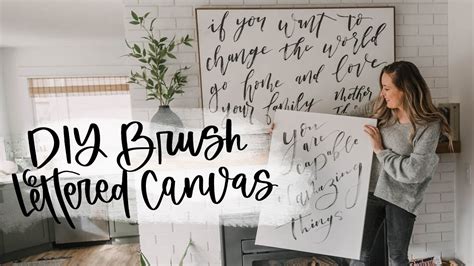 if you want to
change the world
go home and love
your family
Mother
DIY Brush
Lettered Canvas
You
are
capable
of amazing
things